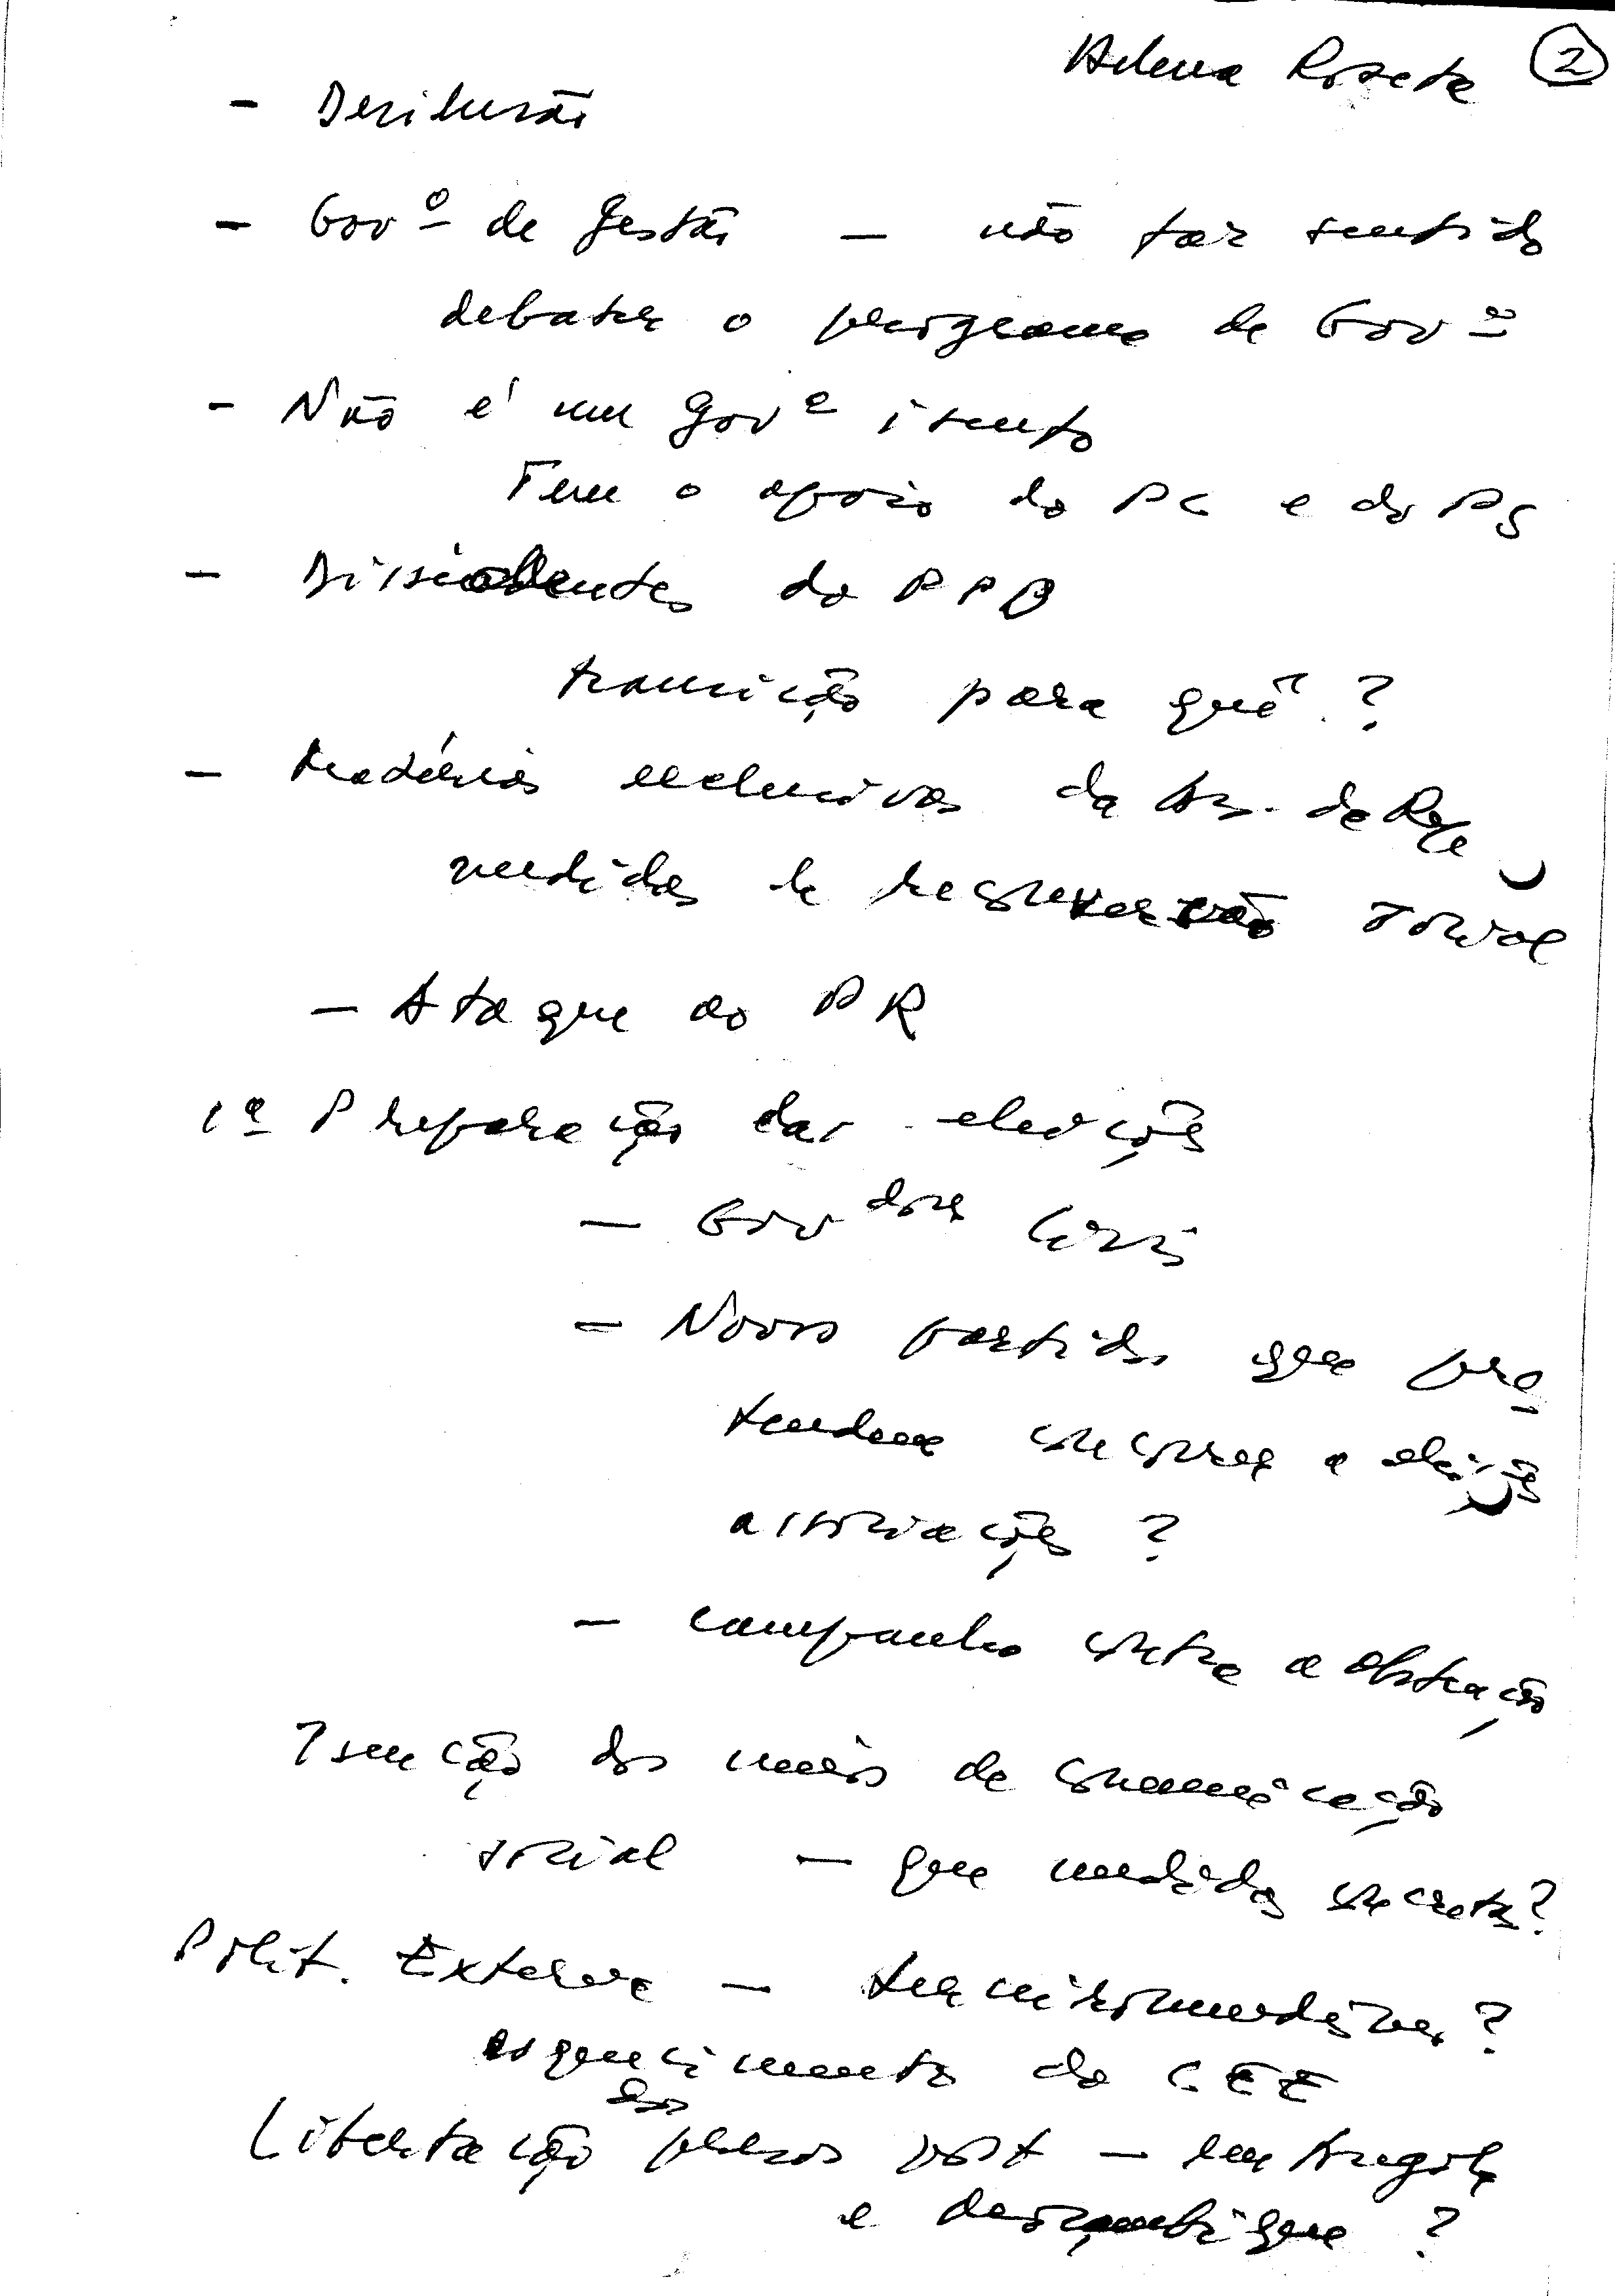 Helena Roseta 2
- Desilusão
- Govº de gestão - não faz sentido
debater o programa de Govº
- Não é um govº isento
Tem o apoio do PC e do PS
- Dissidentes do PPD
transição para quê ?
- Matérias exclusivas da As. da Rep
medidas de recuperação social
- Ataque ao PR
1º Preparação das eleições
- Govdores Civis
- Novos partidos que pre-
tendem concorrer a eleições
associações ?
- campanha contra a abstenção
Isenção dos meios de comunicação
social - que medidas concretas ?
Polit. Externa - terceiromundismo ?
esquecimento da CEE
Libertação dos presos port - em Angola
e Moçambique ?